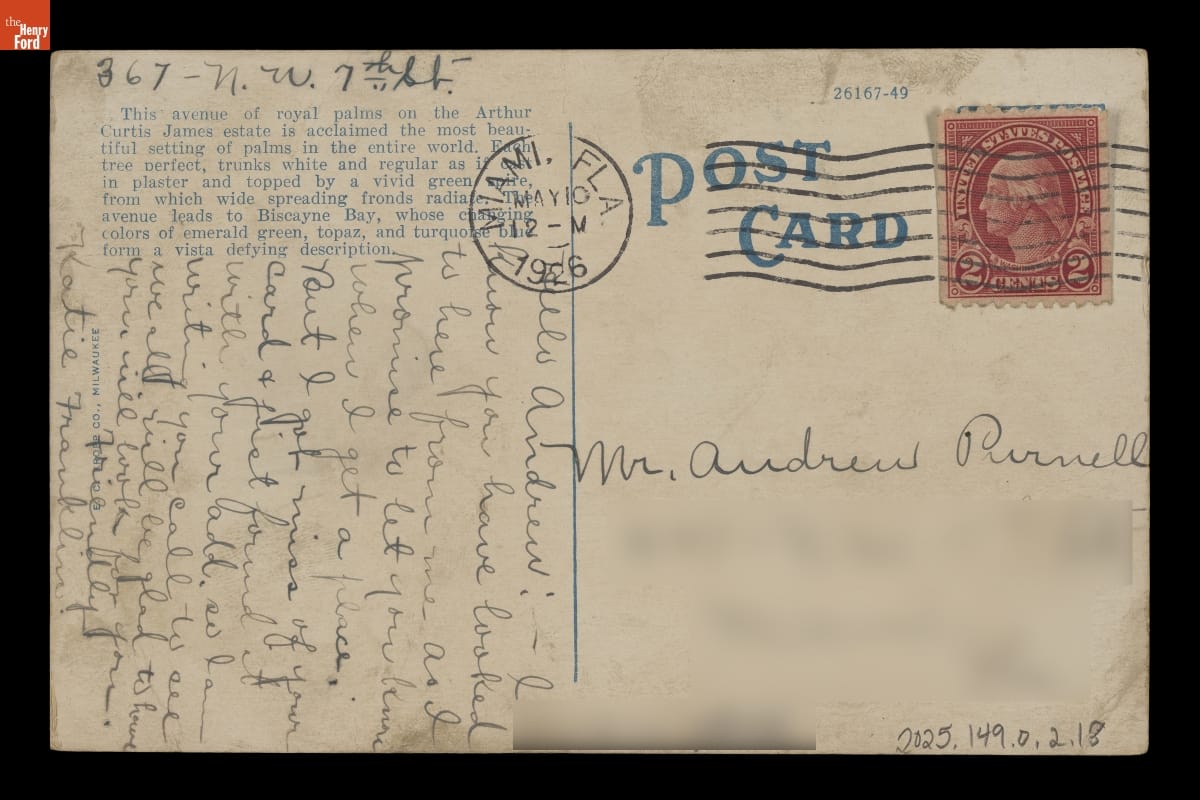 the
Henry
Ford
367 - N. W. 7th St.
This avenue of royal palms on the Arthur
Curtis James estate is acclaimed the most beau-
tiful setting of palms in the entire world. Each
tree perfect, trunks white and regular as if
in plaster and topped by a vivid green spire,
from which wide spreading fronds radiate. The
avenue leads to Biscayne Bay, whose changing
colors of emerald green, topaz, and turquoise blue
form a vista defying description.
26167-49
POST
CARD
MIAMI, FLA
MAY 10
12 - M
1926
UNITED STATES POSTAGE
2 CENTS 2
Hello Andrew: - I
know you have looked
to hear from me as I
promise to let you know
when I get a place.
But I got miss of your
card & just found it
with your add. so I am
writing you call to see
we all will be glad to have
you will look for you.
Friendly
Katie Franklin.
E. C. KROPP CO., MILWAUKEE
Mr. Andrew Purnell
2025.149.0.2.18